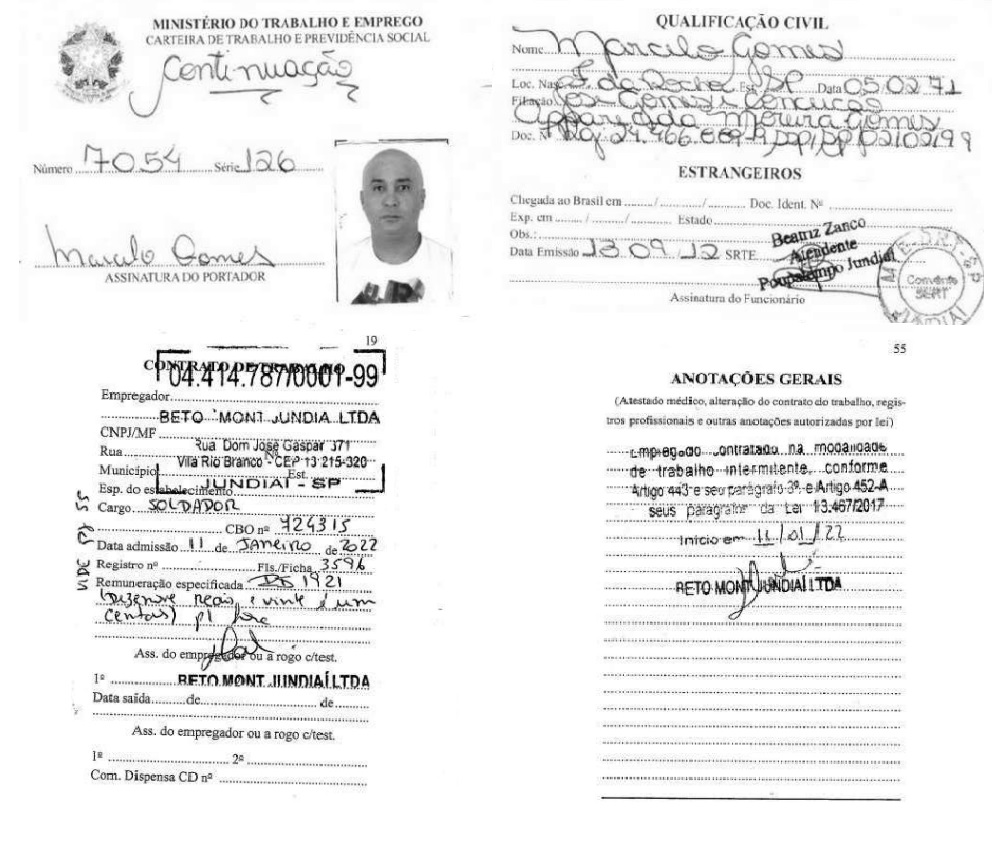 MINISTÉRIO DO TRABALHO E EMPREGO
CARTEIRA DE TRABALHO E PREVIDÊNCIA SOCIAL
Continuação
Número 7054 Série 126
Marcilo Gomes
ASSINATURA DO PORTADOR
QUALIFICAÇÃO CIVIL
Nome Marcilo Gomes
Loc. Nasc. F. da Rocha Est. SP Data 05 02 71
Filiação Jose Gomes
Apparegida Moreira Gomes
Doc. Nº 24.466.669-9 SSP/SP 02102199
ESTRANGEIROS
Chegada ao Brasil em / / Doc. Ident. Nº
Exp. em / / Estado
Obs.:
Data Emissão 13 09 12 SRTE
Beatriz Zanco
Atendente
Poupatempo Jundiaí
Assinatura do Funcionário
Convênio
SERT
JUNDIAÍ
19
CONTRATO DE TRABALHO
04.414.787/0001-99
Empregador
BETO MONT JUNDIA LTDA
CNPJ/MF
Rua Rua Dom José Gaspar 371 Nº
Município Vila Rio Branco - CEP 13 215-320 Est.
JUNDIAI - SP
Esp. do estabelecimento
Cargo SOLDADOR
CBO nº 724315
Data admissão 11 de JANEIRO de 2022
Registro nº Fls./Ficha 3596
Remuneração especificada 19 21
(Dezenove reais e vinte e um
centavos) p/
Ass. do empregador ou a rogo c/test.
1º BETO MONT JUNDIAÍ LTDA
Data saída de de
Ass. do empregador ou a rogo c/test.
1º 2º
Com. Dispensa CD nº
55
ANOTAÇÕES GERAIS
(Atestado médico, alteração do contrato do trabalho, regis-
tros profissionais e outras anotações autorizadas por lei)
Empregado contratado na modalidade
de trabalho intermitente, conforme
Artigo 443 e seu parágrafo 3º e Artigo 452-A
seus parágrafos da Lei 13.467/2017
Inicio em 11/01/22
BETO MONT JUNDIAÍ LTDA